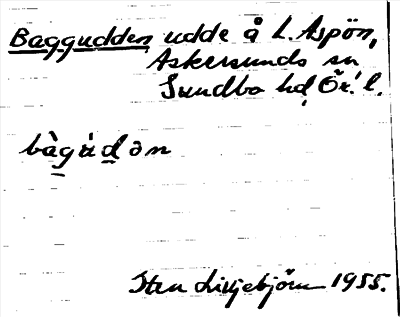 Baggudden, udde å L. Aspön,
Askersunds sn
Sundbo hd, Ör. l.
bàgúdən
Sten Liljebjörn 1955.